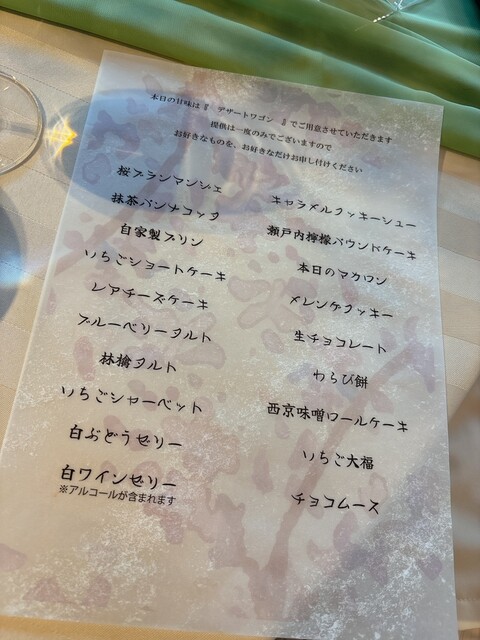 本日の甘味は『　デザートワゴン　』でご用意させていただきます
提供は一度のみでございますので
お好きなものを、お好きなだけお申し付けください
桜ブランマンジェ
抹茶パンナコッタ
自家製プリン
いちごショートケーキ
レアチーズケーキ
ブルーベリータルト
林檎タルト
いちごシャーベット
白ぶどうゼリー
白ワインゼリー
※アルコールが含まれます
キャラメルクッキーシュー
瀬戸内檸檬パウンドケーキ
本日のマカロン
メレンゲクッキー
生チョコレート
わらび餅
西京味噌ロールケーキ
いちご大福
チョコムース